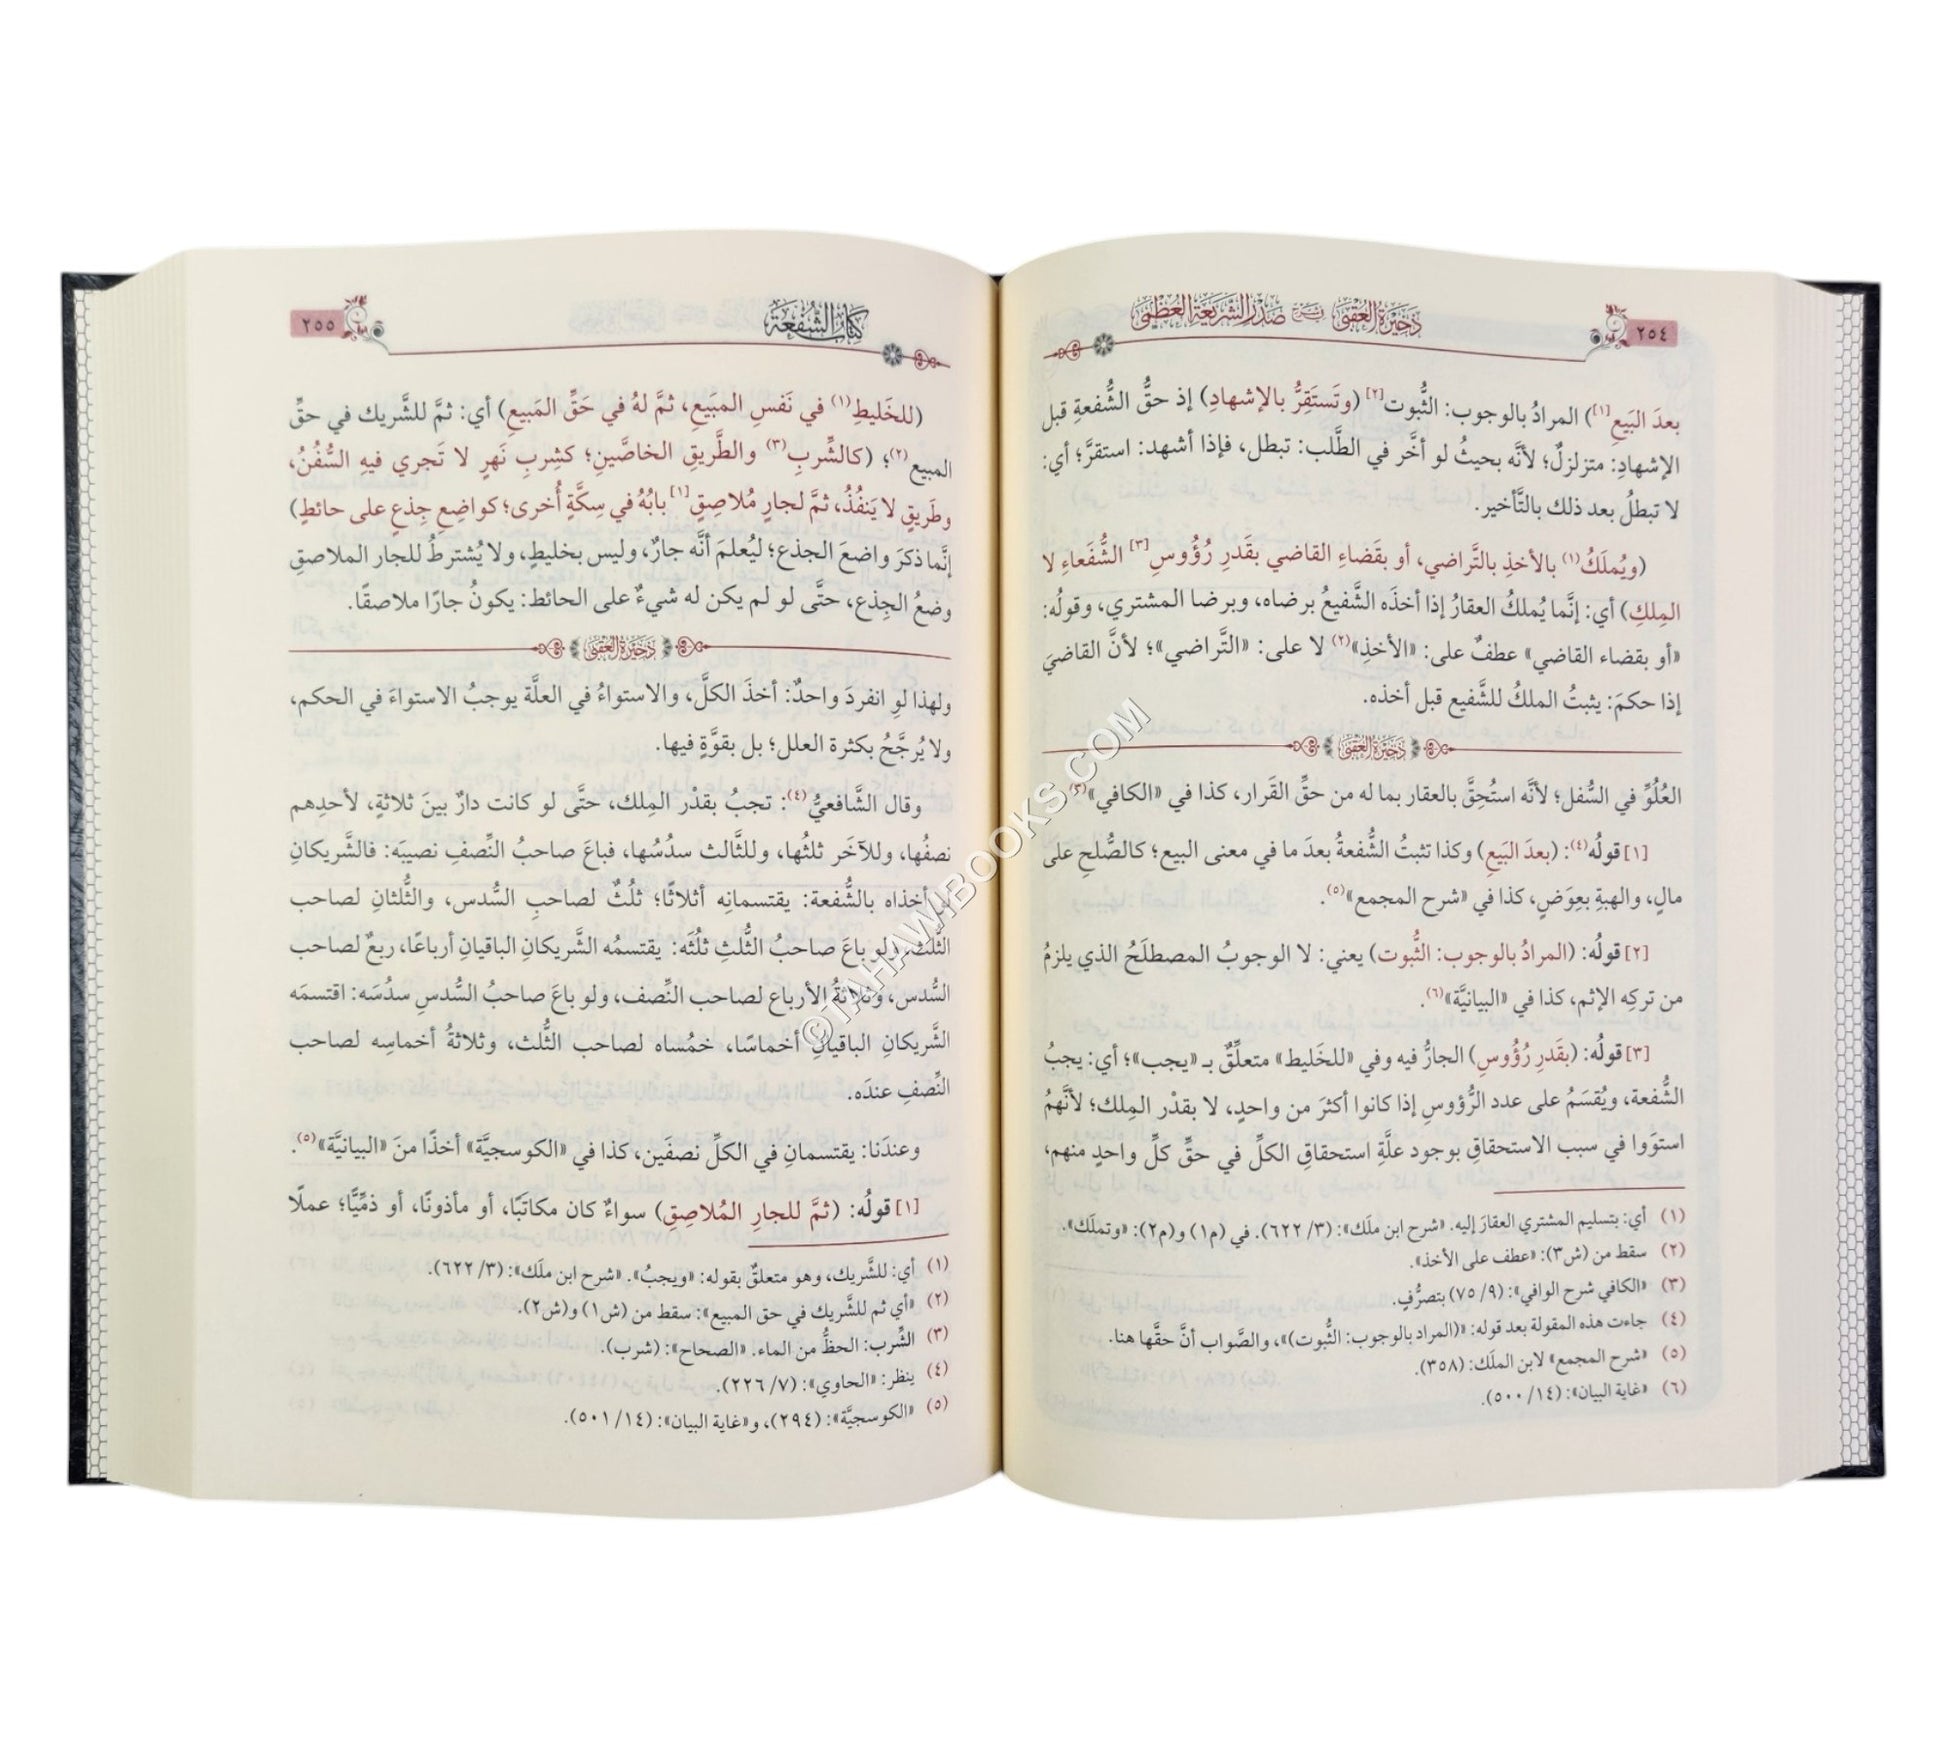 ٢٥٤
ذخيرة العقبى شرح صدر الشريعة العظمى
بعدَ البَيعِ[١]) المرادُ بالوجوب: الثُّبوت[٢] (وتَستَقِرُّ بالإشهادِ) إذ حقُّ الشُّفعةِ قبل
الإشهادِ: متزلزلٌ؛ لأنَّه بحيثُ لو أخَّر في الطَّلب: تبطل، فإذا أشهد: استقرَّ؛ أي:
لا تبطلُ بعد ذلك بالتَّأخير.
(ويُملَكُ(١) بالأخذِ بالتَّراضي، أو بقَضاءِ القاضي بقَدرِ رُؤُوسِ[٣] الشُّفَعاءِ لا
المِلكِ) أي: إنَّما يُملكُ العقارُ إذا أخذَه الشَّفيعُ برضاه، وبرضا المشتري، وقولُه:
«أو بقضاء القاضي» عطفٌ على: «الأخذِ»(٢) لا على: «التَّراضي»؛ لأنَّ القاضيَ
إذا حكمَ: يثبتُ الملكُ للشَّفيع قبل أخذه.
ذخيرة العقبى
العُلُوِّ في السُّفل؛ لأنَّه استُحِقَّ بالعقار بما له من حقِّ القَرار، كذا في «الكافي»(٣).
[١] قولُه(٤): (بعدَ البَيعِ) وكذا تثبتُ الشُّفعةُ بعدَ ما في معنى البيع؛ كالصُّلحِ على
مالٍ، والهبةِ بعِوَضٍ، كذا في «شرح المجمع»(٥).
[٢] قولُه: (المرادُ بالوجوب: الثُّبوت) يعني: لا الوجوبُ المصطلَحُ الذي يلزمُ
من تركِه الإثم، كذا في «البيانيَّة»(٦).
[٣] قولُه: (بقَدرِ رُؤُوسِ) الجارُّ فيه وفي «للخَليط» متعلِّقٌ بـ «يجب»؛ أي: يجبُ
الشُّفعة، ويُقسَمُ على عدد الرُّؤوسِ إذا كانوا أكثرَ من واحدٍ، لا بقدْر المِلك؛ لأنَّهمُ
استوَوا في سبب الاستحقاقِ بوجود علَّةِ استحقاقِ الكلِّ في حقِّ كلِّ واحدٍ منهم،
(١) أي: بتسليم المشتري العقارَ إليه. «شرح ابن ملَك»: (٣/ ٦٢٢). في (م١) و(م٢): «وتملَك».
(٢) سقط من (ش٣): «عطف على الأخذ».
(٣) «الكافي شرح الوافي»: (٩/ ٧٥) بتصرُّفٍ.
(٤) جاءت هذه المقولة بعد قوله: «(المراد بالوجوب: الثُّبوت)»، والصَّواب أنَّ حقَّها هنا.
(٥) «شرح المجمع» لابن الملَك: (٣٥٨).
(٦) «غاية البيان»: (١٤/ ٥٠٠).
كتاب الشفعة
٢٥٥
(للخَليطِ(١) في نَفسِ المبَيعِ، ثمَّ لهُ في حَقِّ المَبيعِ) أي: ثمَّ للشَّريك في حقِّ
المبيع(٢)؛ (كالشِّربِ(٣) والطَّريقِ الخاصَّينِ؛ كشِربِ نَهرٍ لا تَجري فيهِ السُّفُنُ،
وطَريقٍ لا يَنفُذُ، ثمَّ لجارٍ مُلاصِقٍ[١] بابُهُ في سِكَّةٍ أُخرى؛ كواضِعِ جِذعٍ على حائطٍ)
إنَّما ذكرَ واضعَ الجذع؛ ليُعلمَ أنَّه جارٌ، وليس بخليطٍ، ولا يُشترطُ للجار الملاصقِ
وضعُ الجِذع، حتَّى لو لم يكن له شيءٌ على الحائط: يكونُ جارًا ملاصقًا.
ذخيرة العقبى
ولهذا لوِ انفردَ واحدٌ: أخذَ الكلَّ، والاستواءُ في العلَّة يوجبُ الاستواءَ في الحكم،
ولا يُرجَّحُ بكثرة العلل؛ بل بقوَّةٍ فيها.
وقال الشَّافعيُّ(٤): تجبُ بقدْر المِلك، حتَّى لو كانت دارٌ بينَ ثلاثةٍ، لأحدِهم
نصفُها، وللآخَر ثلثُها، وللثَّالث سدسُها، فباعَ صاحبُ النِّصفِ نصيبَه: فالشَّريكانِ
لو أخذاه بالشُّفعة: يقتسمانِه أثلاثًا؛ ثلُثٌ لصاحبِ السُّدس، والثُّلثانِ لصاحب
الثُّلث، ولو باعَ صاحبُ الثُّلثِ ثلُثَه: يقتسمُه الشَّريكانِ الباقيانِ أرباعًا، ربعٌ لصاحب
السُّدس، وثلاثةُ الأرباع لصاحب النِّصف، ولو باعَ صاحبُ السُّدسِ سدُسَه: اقتسمَه
الشَّريكانِ الباقيانِ أخماسًا، خمُساه لصاحب الثُّلث، وثلاثةُ أخماسِه لصاحب
النِّصفِ عندَه.
وعندَنا: يقتسمانِ في الكلِّ نصفَين، كذا في «الكوسجيَّة» أخذًا منَ «البيانيَّة»(٥).
[١] قولُه: (ثمَّ للجارِ المُلاصِقِ) سواءٌ كان مكاتَبًا، أو مأذونًا، أو ذمِّيًّا؛ عملًا
(١) أي: للشَّريك، وهو متعلقٌ بقوله: «ويجبُ». «شرح ابن ملَك»: (٣/ ٦٢٢).
(٢) «أي ثم للشَّريك في حق المبيع»: سقط من (ش١) و(ش٢).
(٣) الشِّرب: الحظُّ من الماء. «الصحاح»: (شرب).
(٤) ينظر: «الحاوي»: (٧/ ٢٢٦).
(٥) «الكوسجيَّة»: (٢٩٤)، و«غاية البيان»: (١٤/ ٥٠١).
©TAHAWIBOOKS.COM